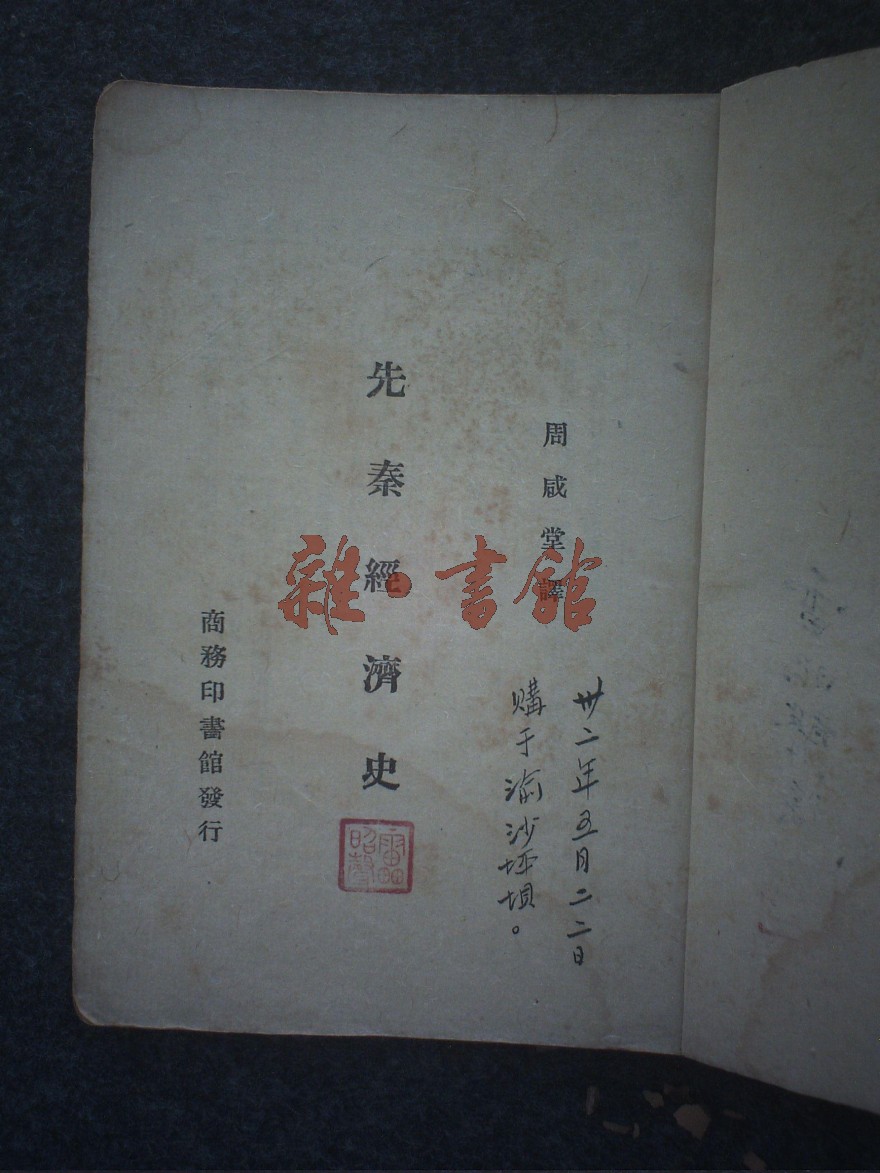 周咸堂譯
先秦經濟史
商務印書館發行
卅二年五月二二日
購于渝沙坪垻。
雷昭聲
雜·書館